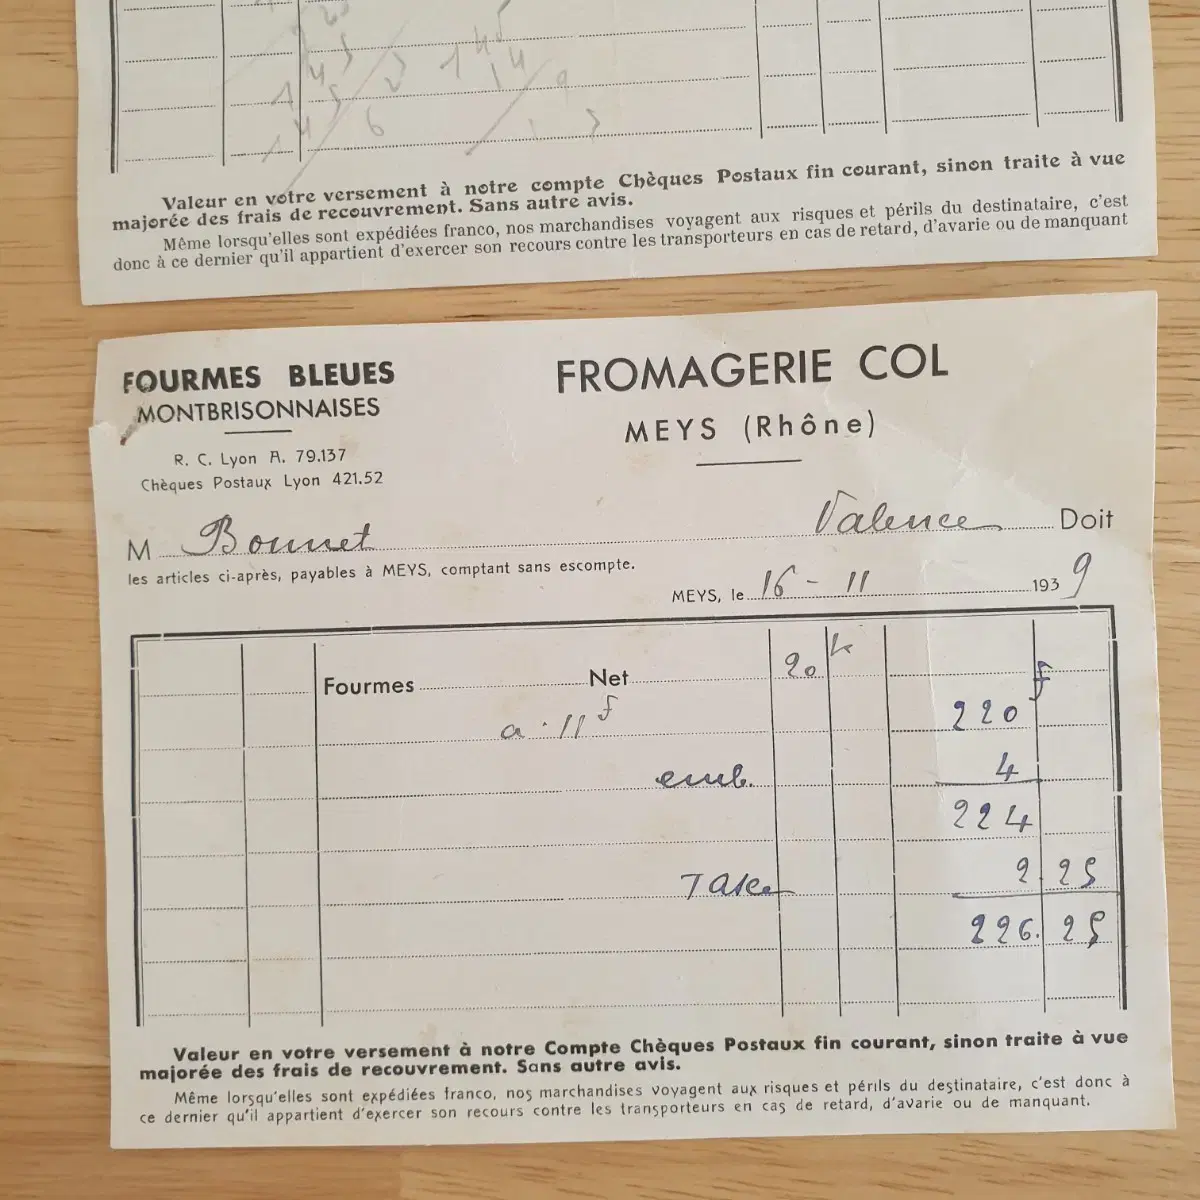 Valeur en votre versement à notre compte Chèques Postaux fin courant, sinon traite à vue
majorée des frais de recouvrement. Sans autre avis.
Même lorsqu'elles sont expédiées franco, nos marchandises voyagent aux risques et périls du destinataire, c'est
donc à ce dernier qu'il appartient d'exercer son recours contre les transporteurs en cas de retard, d'avarie ou de manquant
FOURMES BLEUES
MONTBRISONNAISES
R. C. Lyon A. 79.137
Chèques Postaux Lyon 421.52
FROMAGERIE COL
MEYS (Rhône)
M Bonnet Valence Doit
les articles ci-après, payables à MEYS, comptant sans escompte.
MEYS, le 16 - 11 1939
Fourmes Net 20 k
a 11 f 220 f
emb. 4
224
Taxe 2 25
226. 25
Valeur en votre versement à notre Compte Chèques Postaux fin courant, sinon traite à vue
majorée des frais de recouvrement. Sans autre avis.
Même lorsqu'elles sont expédiées franco, nos marchandises voyagent aux risques et périls du destinataire, c'est donc à
ce dernier qu'il appartient d'exercer son recours contre les transporteurs en cas de retard, d'avarie ou de manquant.